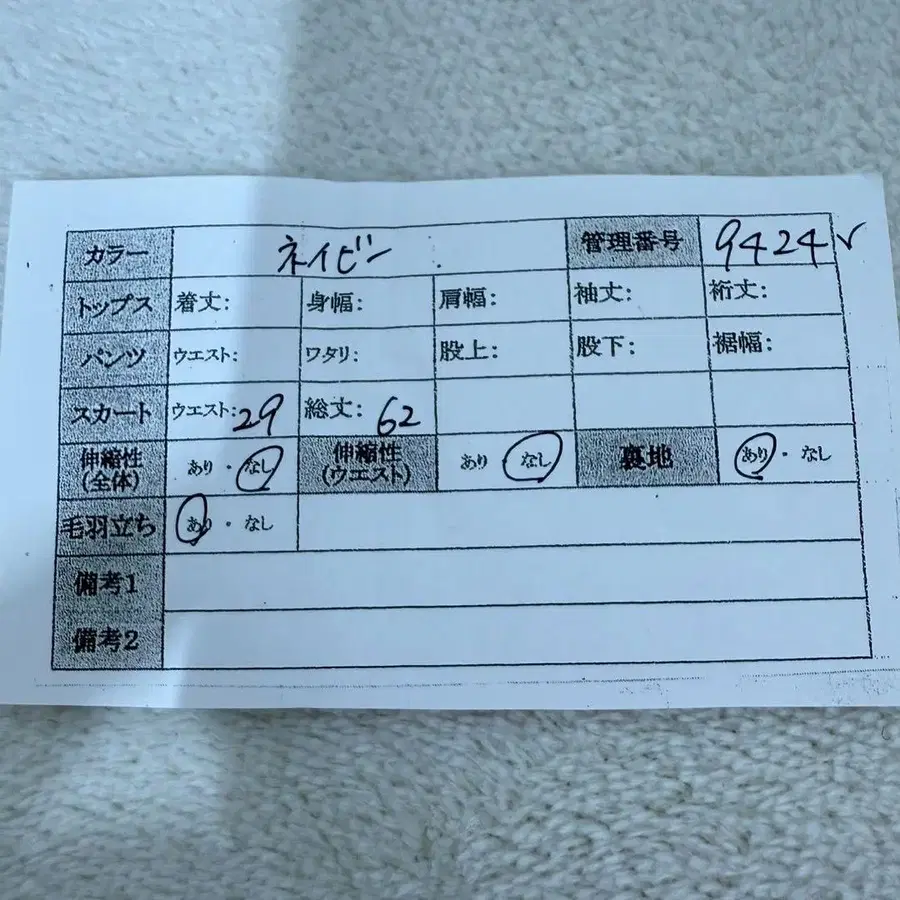 カラー ネイビー 管理番号 9424✓
トップス 着丈: 身幅: 肩幅: 袖丈: 裄丈:
パンツ ウエスト: ワタリ: 股上: 股下: 裾幅:
スカート ウエスト:29 総丈:62
伸縮性(全体) あり・なし 伸縮性(ウエスト) あり なし 裏地 あり・なし
毛羽立ち あり・なし
備考1
備考2